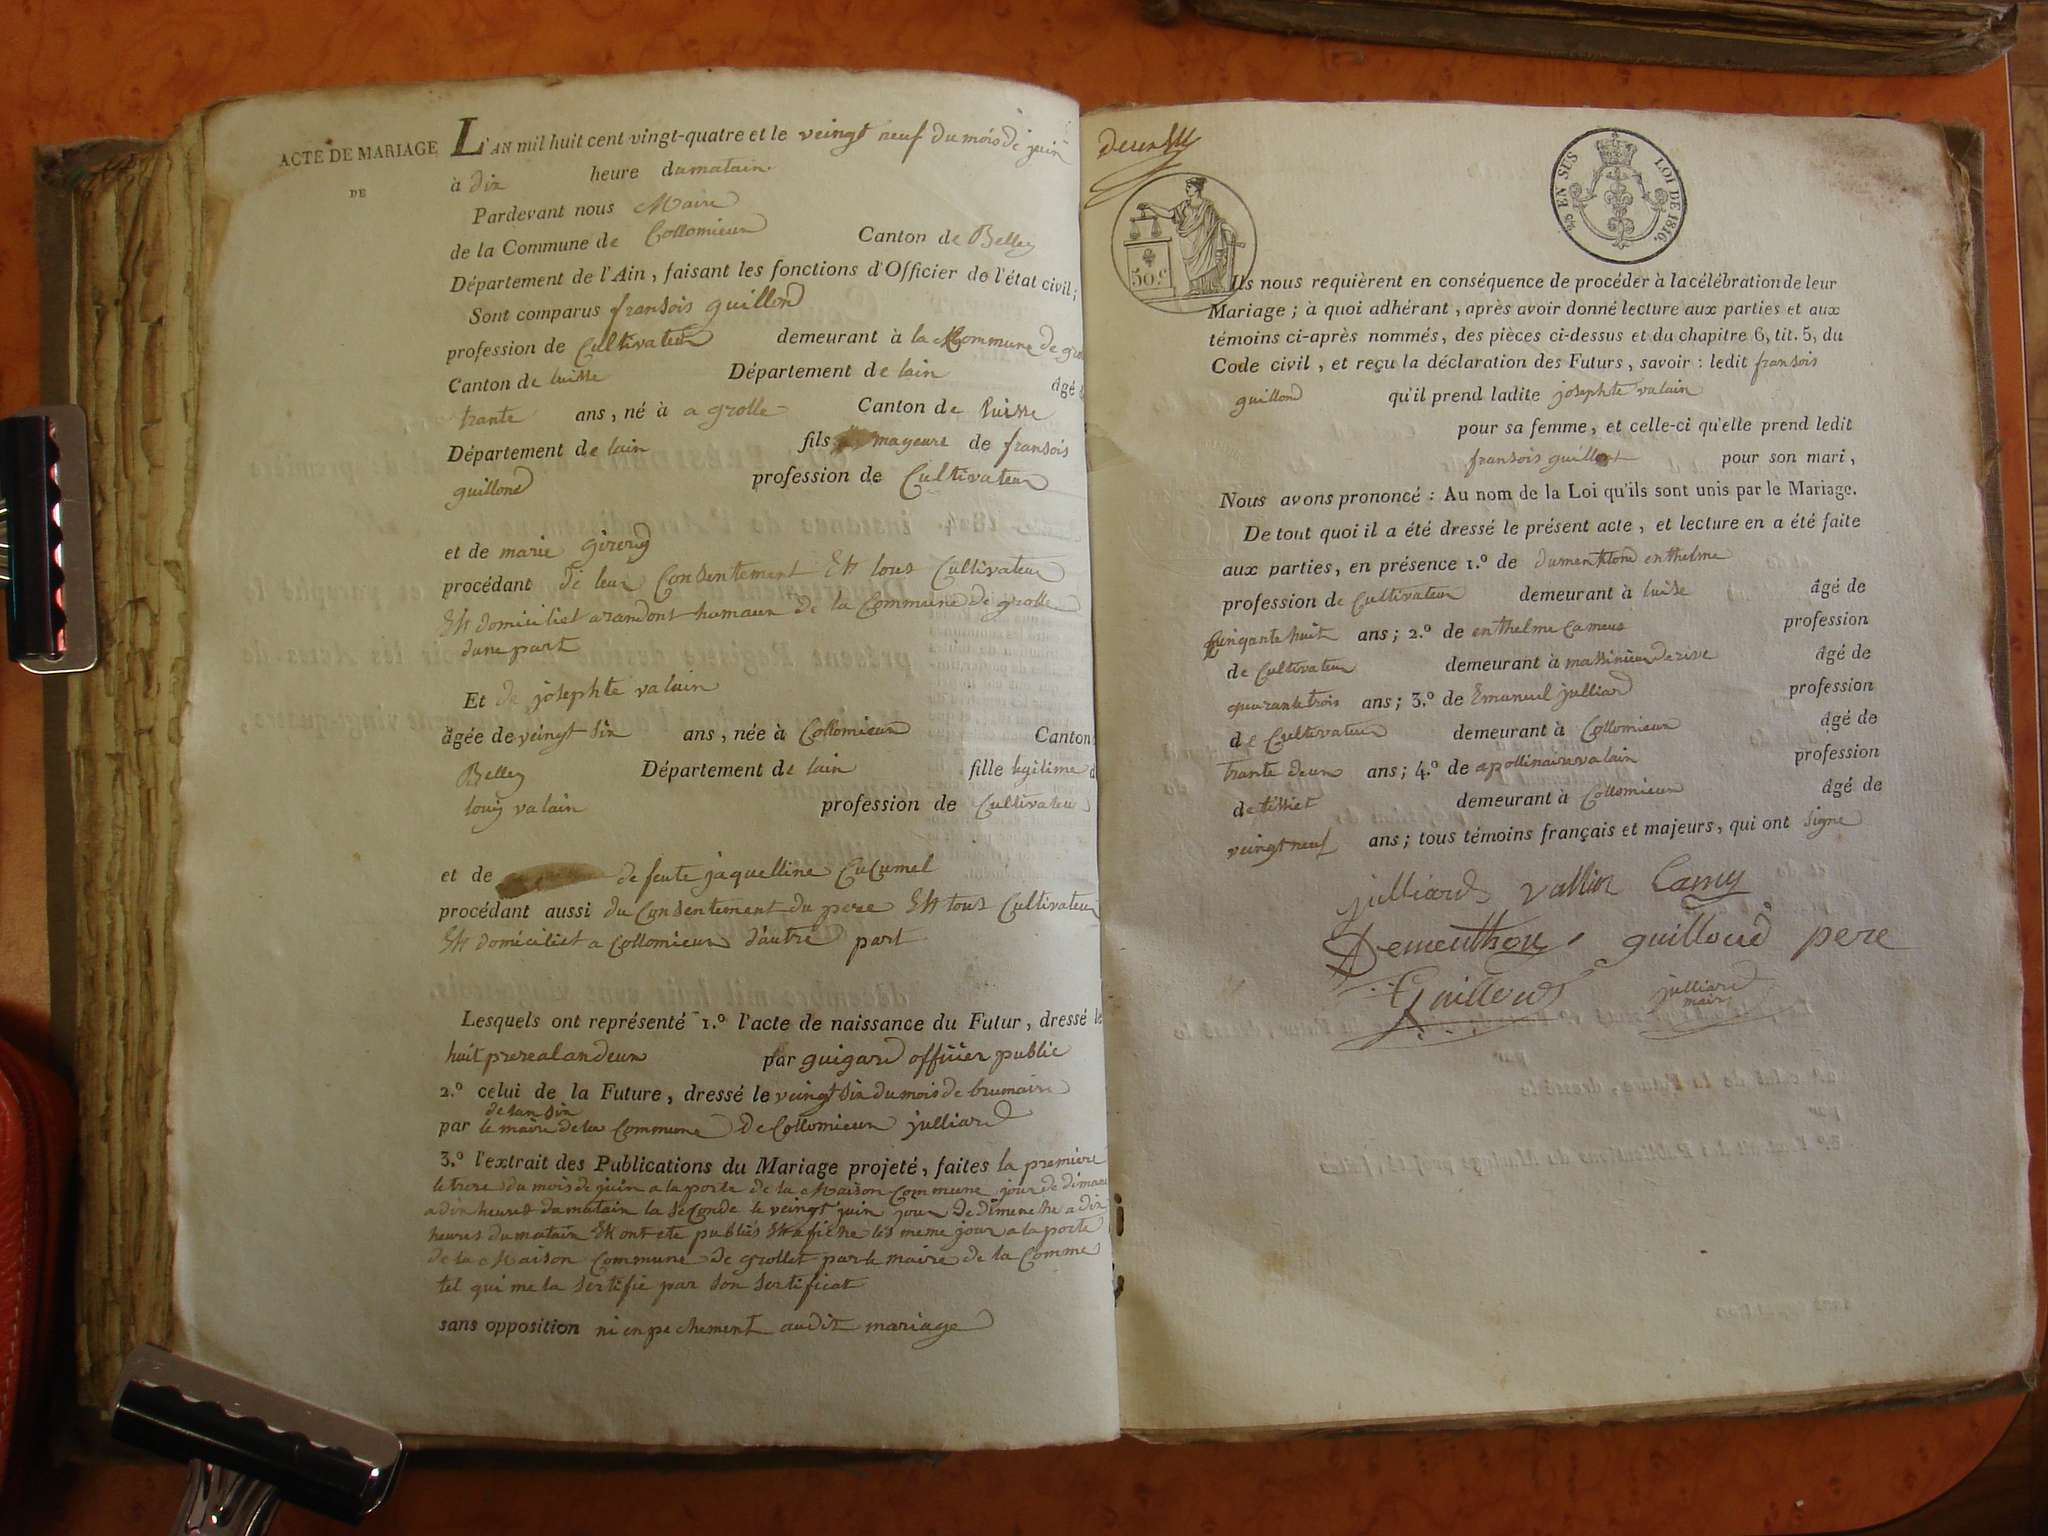 ACTE DE MARIAGE
DE
L'AN mil huit cent vingt-quatre et le veingt neuf du mois de juin
à dix heure du matain
Pardevant nous Maire
de la Commune de Collomieux Canton de Belley
Département de l'Ain, faisant les fonctions d'Officier de l'état civil;
Sont comparus fransois guillond
profession de Cultivateur demeurant à la Commune de
Canton de luisse Département de lain âgé
trante ans, né à a grolle Canton de luisse
Département de lain fils mayeurs de fransois
guillond profession de Cultivateur
et de marie girerd
procédant de leur Consentement Ett tous Cultivateur
Ett domiciliet a randont humaux de la Commune de grolle
dune part
Et de josephte valain
âgée de veingt six ans, née à Collomieux Canton
Belley Département de lain fille legitime
louis valain profession de Cultivateur
et de de feute jaquelline Cucumel
procédant aussi du Consentement du pere Ett tous Cultivateur
Ett domiciliet a Collomieux d'autre part
Lesquels ont représenté 1.º l'acte de naissance du Futur, dressé le
huit prereal an deux par guigard officier public
2.º celui de la Future, dressé le veingt six du mois de brumaire
de lan six
par le maire de la Commune de Collomieux julliard
3.º l'extrait des Publications du Mariage projeté, faites la premiere
le treze du mois de juin a la porte de la Maison Commune jour de dimanc
a dix heures du matain la seconde le veingt juin jour de dimenche a dix
heures du matain Ett ont ete publiés Ett afiche les meme jour a la porte
de la Maison Commune de grollet par le maire de la Comme
tel qui me la sertifie par son sertificat
sans opposition ni enpechement audit mariage
EN SUS LOI DE 1816.
50.c
Ils nous requièrent en conséquence de procéder à la célébration de leur
Mariage; à quoi adhérant, après avoir donné lecture aux parties et aux
témoins ci-après nommés, des pièces ci-dessus et du chapitre 6, tit. 5, du
Code civil, et reçu la déclaration des Futurs, savoir: ledit fransois
guillond qu'il prend ladite josephte valain
pour sa femme, et celle-ci qu'elle prend ledit
fransois guillont pour son mari,
Nous avons prononcé: Au nom de la Loi qu'ils sont unis par le Mariage.
De tout quoi il a été dressé le présent acte, et lecture en a été faite
aux parties, en présence 1.º de dumenthond enthelme
profession de Cultivateur demeurant à luise âgé de
Cuinqante huit ans; 2.º de enthelme Cameus profession
de Cultivateur demeurant à massinieu de rive âgé de
quarante trois ans; 3.º de Emanuel julliard profession
de Cultivateur demeurant à Collomieux âgé de
trante deux ans; 4.º de apollinaire valain profession
de tissiet demeurant à Collomieux âgé de
veingt neuf ans; tous témoins français et majeurs, qui ont signe
julliard vallin Camy
Dementhon guilloud pere
Guilloud julliard
maire